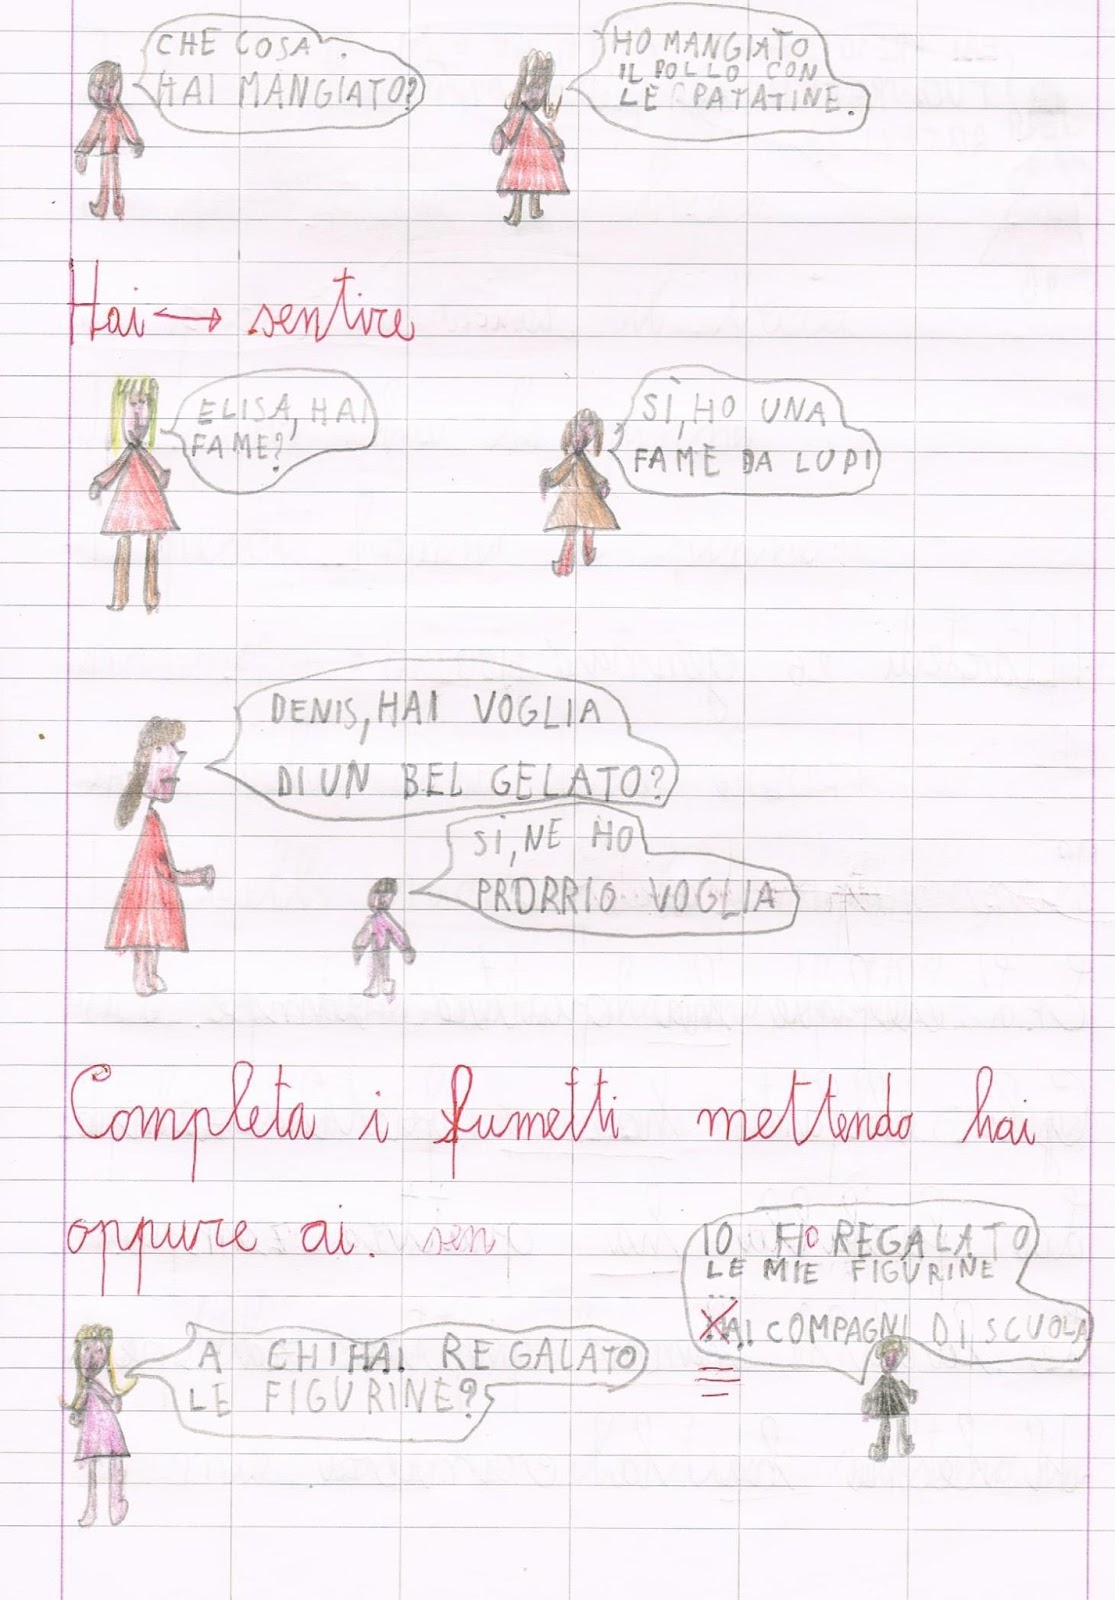 CHE COSA
HAI MANGIATO?
HO MANGIATO
IL POLLO CON
LE PATATINE.
Hai ↔ sentire
ELISA, HAI
FAME?
SÌ, HO UNA
FAME DA LUPI
DENIS, HAI VOGLIA
DI UN BEL GELATO?
SÌ, NE HO
PROPRIO VOGLIA
Completa i fumetti mettendo hai
oppure ai. sen
IO HO REGALATO
LE MIE FIGURINE
AI COMPAGNI DI SCUOLA
A CHI HAI REGALATO
LE FIGURINE?